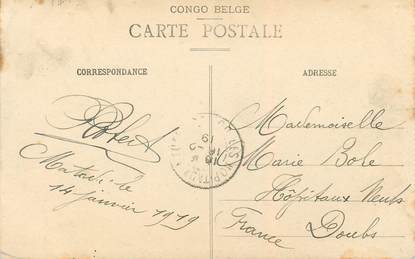 CONGO BELGE
CARTE POSTALE
CORRESPONDANCE
ADRESSE
Robert
Matadi le
14 janvier 1919
Mademoiselle
Marie Bole
Hôpitaux Neufs
Doubs
France